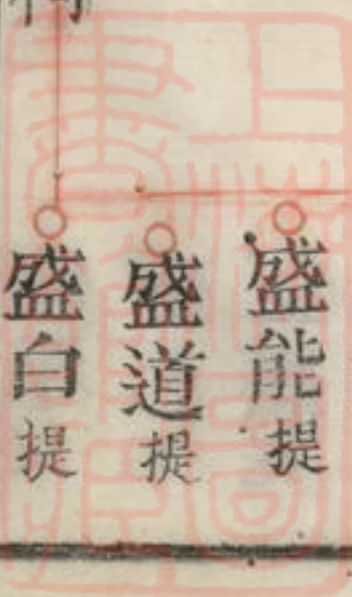 盛能提
盛道提
盛白提